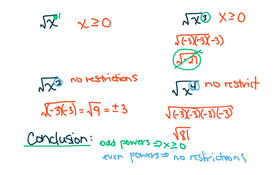 √x¹ x ≥ 0
√x³ x ≥ 0
√(-3)(-3)(-3)
√-27
√x² no restrictions
√(-3)(-3) = √9 = ±3
√x⁴ no restrict
√(-3)(-3)(-3)(-3)
√81
Conclusion: odd powers ⇒ x ≥ 0
even powers ⇒ no restrictions